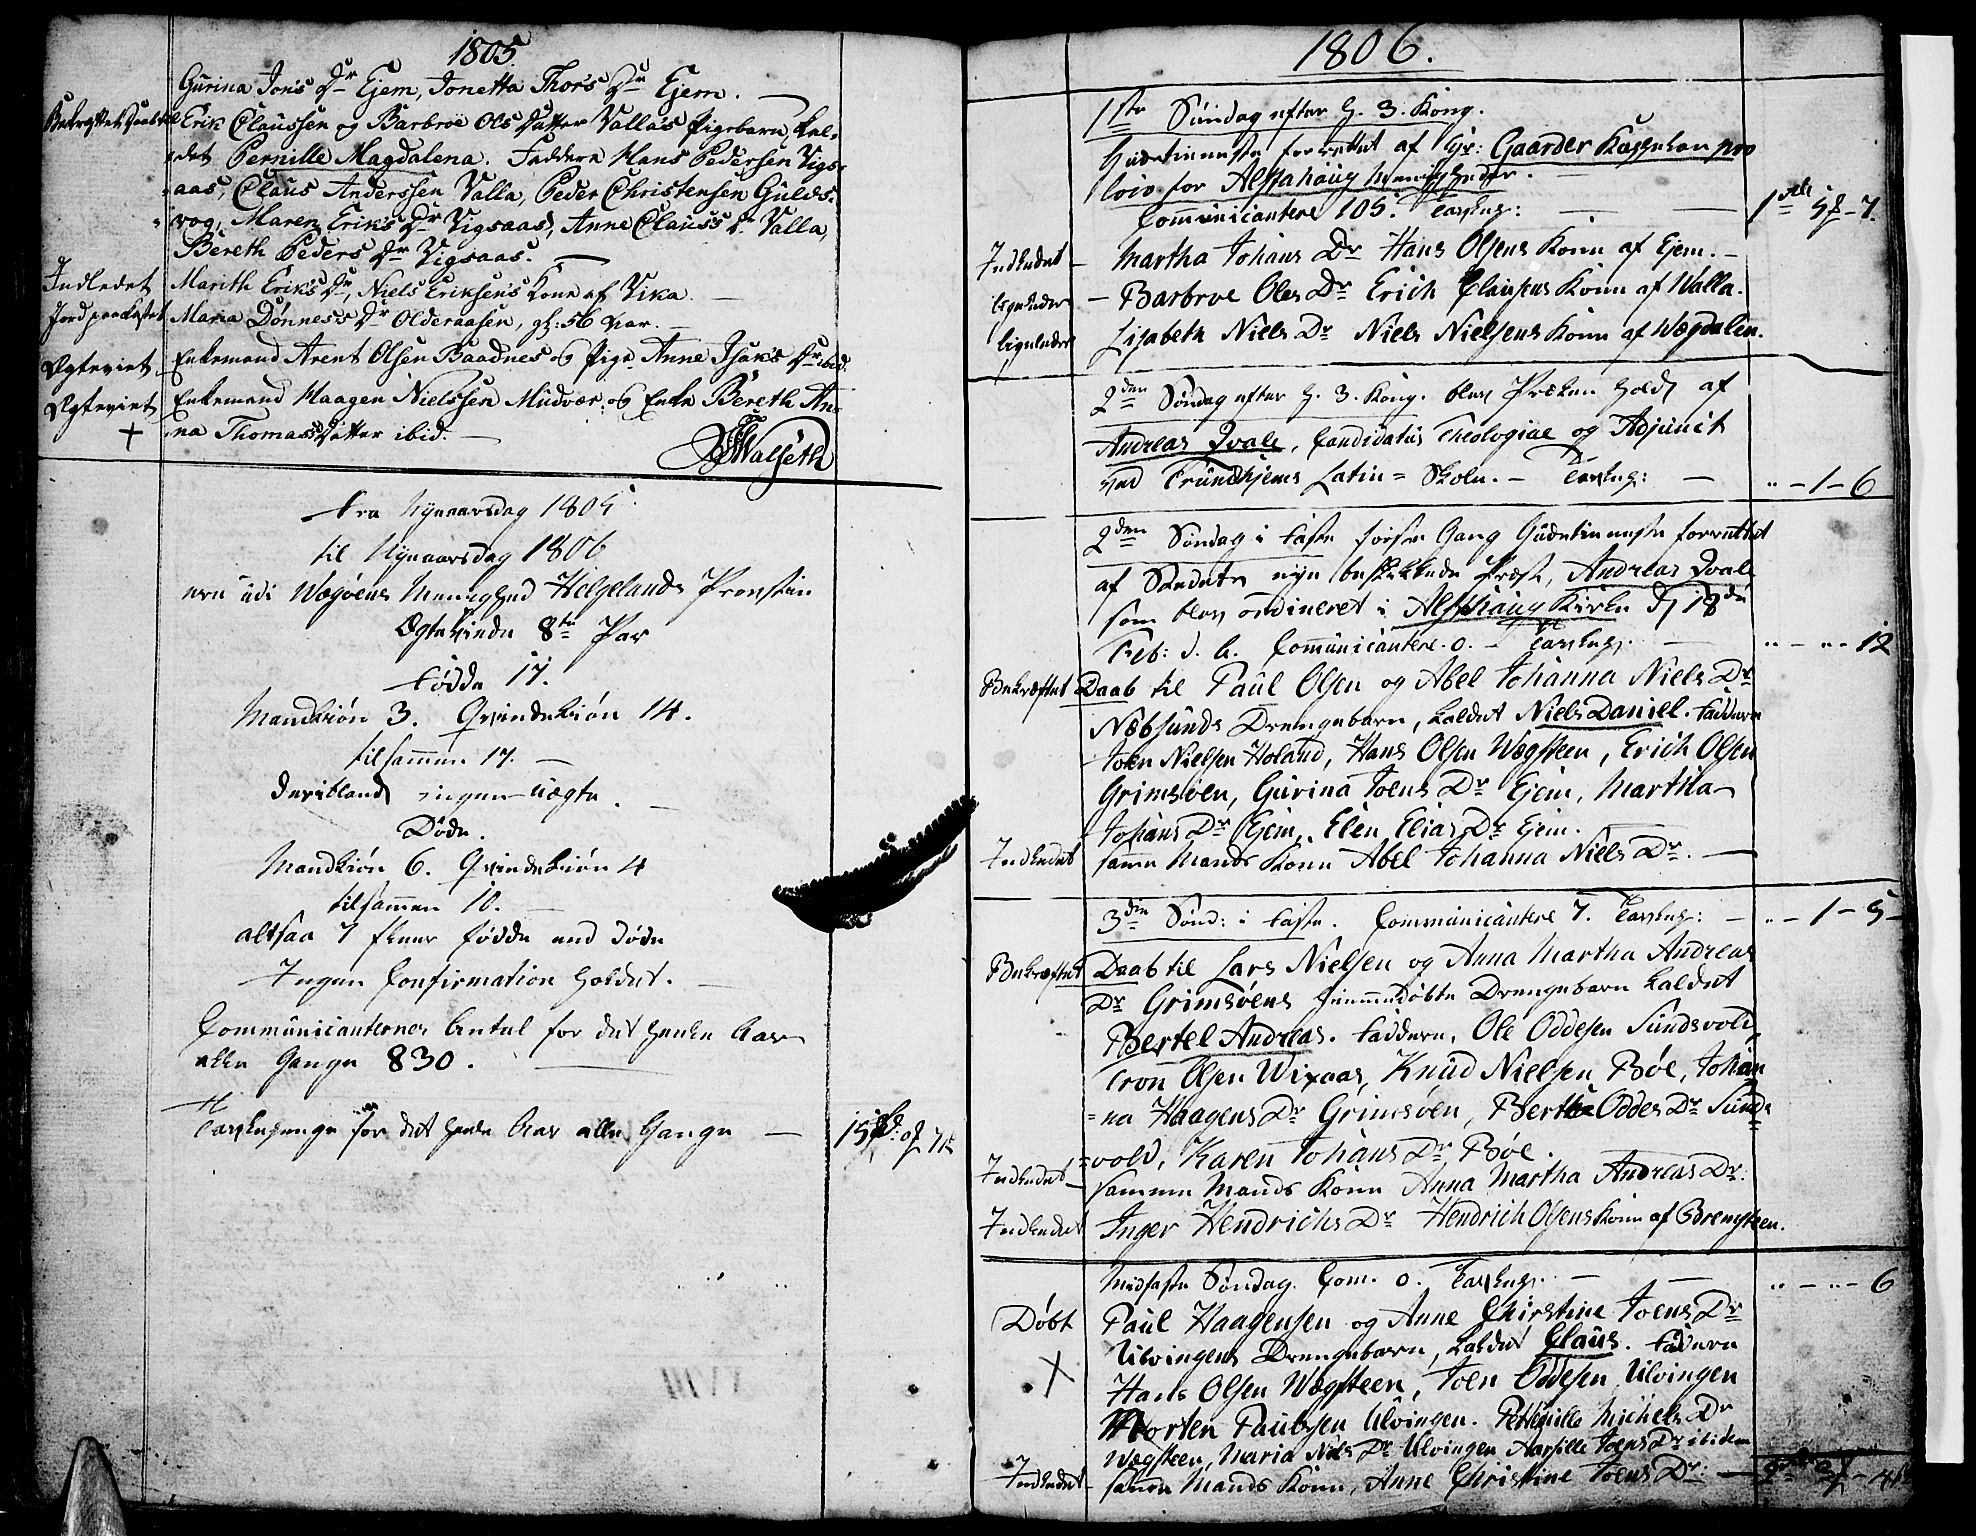 1805.
Gurina Jon's Dr Ejem, Jonetta Thor's Dr Ejem.
Bekræftet Daab til Erik Claussen og Barbroe Ols Datter Valla's Pigebarn, kal-
det Pernille Magdalena. Faddere Hans Pedersen Vigs-
aas, Claus Anderssen Valla, Peder Christensen Gulds-
vog, Maren Erik's Dr Vigsaas, Anne Clauss Dr Valla,
Bereth Peders Dr Vigsaas.
Indledet Marith Erik's Dr, Niels Eriksen's Kone af Vika.
Jord paakastet Maria Dønness Dr Olderaasen, gl: 56 Aar.
Ægteviet Enkemand Arent Olsen Baadnes og Pige Anne Isak's Dr ibid.
Ægteviet Enkemand Haagen Nielssen Mudvær og Enke Bereth An-
+ na Thomas Datter ibid.
Walseth
Fra Nyeaarsdag 1805
til Nyeaarsdag 1806
ere udi Wegøens Menighed Helgelands Provstie
Ægteviede 8te Par
Fødde 17.
Mandkiøn 3. Qvindekiøn 14.
tilsammen 17.
deriblandt ingen uægte.
Døde.
Mandkiøn 6. Qvindekiøn 4
tilsammen 10.
altsaa 7 flere fødde end døde
Ingen Confirmation holdet.
Communicanternes Antal for det heele Aar
alle Gange 830.
Tavlepenge for det heele Aar alle Gange — 15
1806.
1ste Søndag efter H. 3. Kong.
Gudstienneste forrettet af Hr: Gaarder Kappelan pro
loco for Alstahaug Menigheder.
Communicantere 105. Tavlep: — 1 5 - 7.
Indledet - Martha Johans Dr Hans Olsens Kone af Ejem. -
ligeledes - Barbroe Oles Dr Erich Clausens Kone af Walla.
ligeledes Lisabeth Niels Dr Niels Nielsens Kone af Wegdalen.
2den Søndag efter H. 3. Kong. blev Præken holdt af
Andreas Qvale, Candidatus Theologiae og Adjunct
ved Trundhjems Latin = Skole. - Tavlep: — " - 1 - 6
2den Søndag i Faste første Gang Gudstienneste forrettet
af Stedets nye beskikkede Præst, Andreas Qvale
som blev ordineret i Alstahaug Kirke d 18de
Feb: d. A. Communicantere. 0. - Tavlep. — " - " - 12
Bekræftet Daab til Paul Olsen og Abel Johanna Niels Dr
Næbsunds Drengebarn, kaldet Niels Daniel. Faddere
Joen Nielsen Holand, Hans Olsen Wegsteen, Erich Olsen
Grimsøen, Gurina Joens Dr Ejem, Martha
Johans Dr Ejem, Elen Elias Dr Ejem.
Indledet samme Mands Kone Abel Johanna Niels Dr. —
3die Sønd: i Faste. Communicantere 7. Tavlep: — " - 1 - 5 -
Bekræftet Daab til Lars Nielsen og Anna Martha Andreas
Dr Grimsøens hiemmedøbte Drengebarn kaldet
Bertel Andreas. Faddere, Ole Oddesen Sundsvold,
Tron Olsen Wixaas, Knud Nielsen Bøe, Johan
=na Haagens Dr Grimsøen, Bertha Oddes Dr Sunds
=vold, Karen Johans Dr Bøe.
Indledet - samme Mands Kone Anna Martha Andreas Dr.
Indledet Inger Hendrichs Dr Hendrich Olsens Kone af Bremsteen.
Midfaste Søndag. Com. 0. Tavlep. — " - " - 6
Døbt Paul Haagensen og Anne Christine Joens Dr
Ulvingens Drengebarn, kaldet Claus. Faddere
X Hans Olsen Wegsteen, Joen Oddesen Ulvingen
Morten Paulsen Ulvingen. Pettenille Michels Dr
Wegsteen, Maria Niels Dr Ulvingen Joens Dr ibidem
Indledet - samme Mands Kone, Anne Christine Joens Dr. —